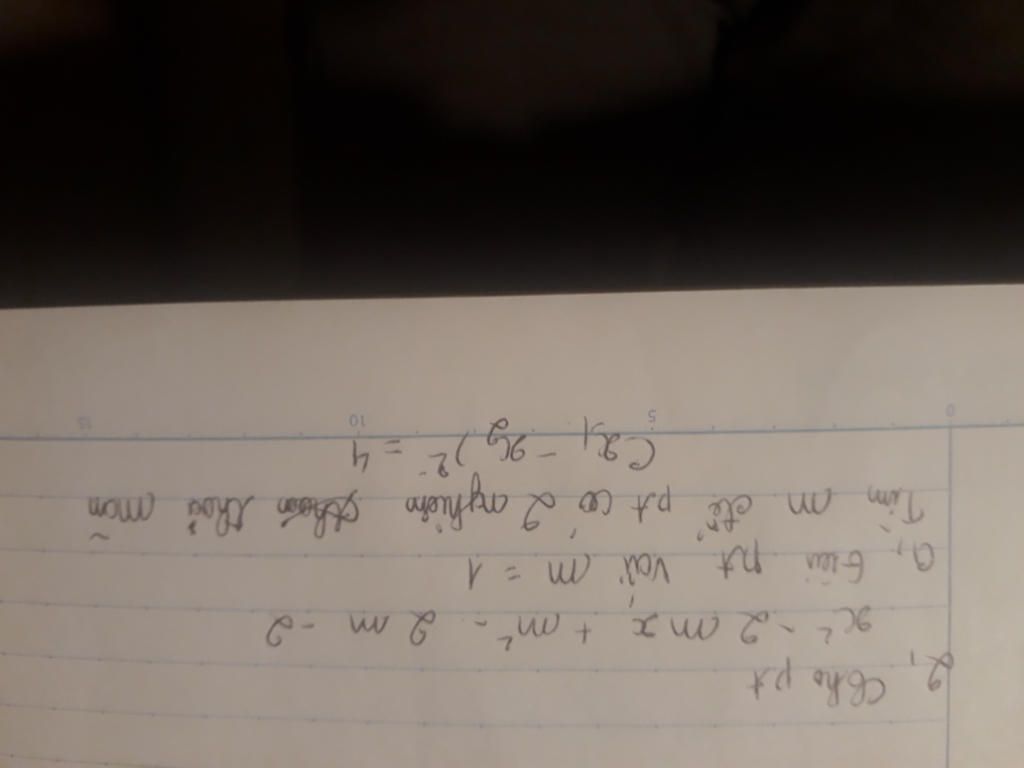 2, Cho pt
x² - 2mx + m² - 2m - 2
a, Giải pt với m = 1
Tìm m để pt có 2 nghiệm thoả mãn
(x₁ - x₂)² = 4
0 5 10 15